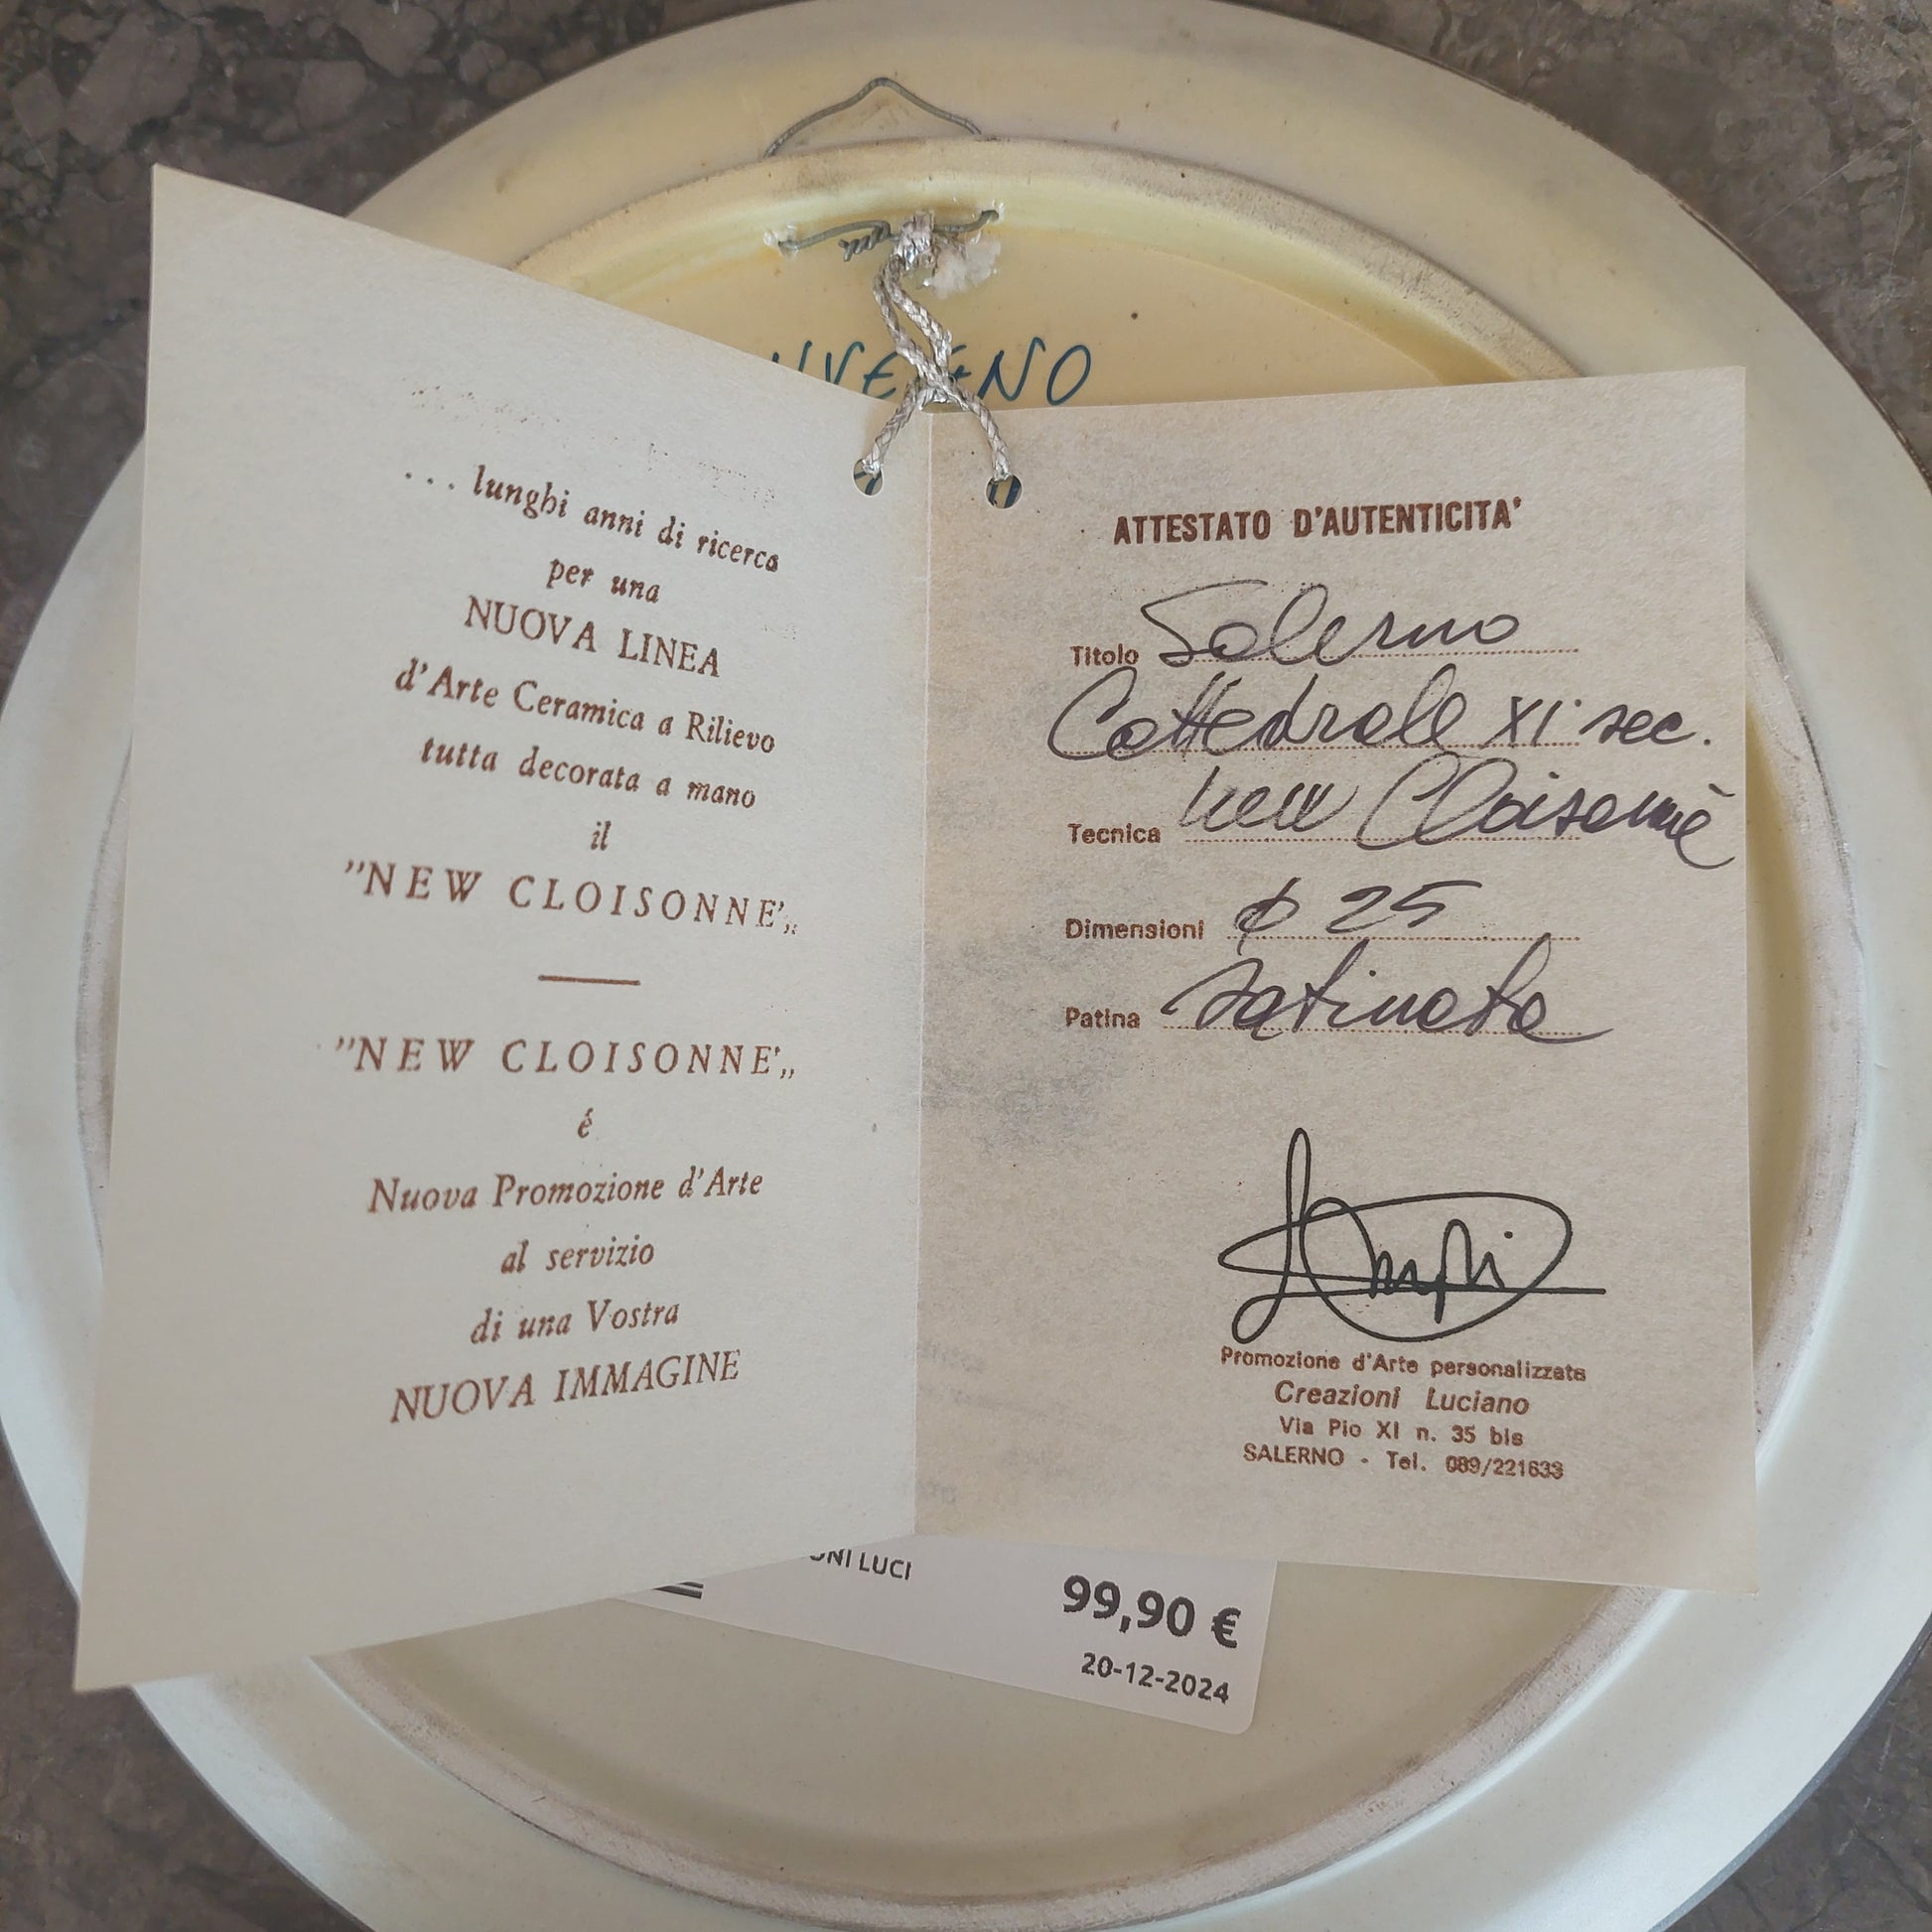 ... lunghi anni di ricerca
per una
NUOVA LINEA
d'Arte Ceramica a Rilievo
tutta decorata a mano
il
"NEW CLOISONNE'„
"NEW CLOISONNE'„
é
Nuova Promozione d'Arte
al servizio
di una Vostra
NUOVA IMMAGINE
ATTESTATO D'AUTENTICITA'
Titolo Salerno
Cattedrale XI° sec.
Tecnica New Cloisonnè
Dimensioni ϕ 25
Patina satinata
Promozione d'Arte personalizzata
Creazioni Luciano
Via Pio XI n. 35 bis
SALERNO - Tel. 089/221633
LUCI
99,90 €
20-12-2024